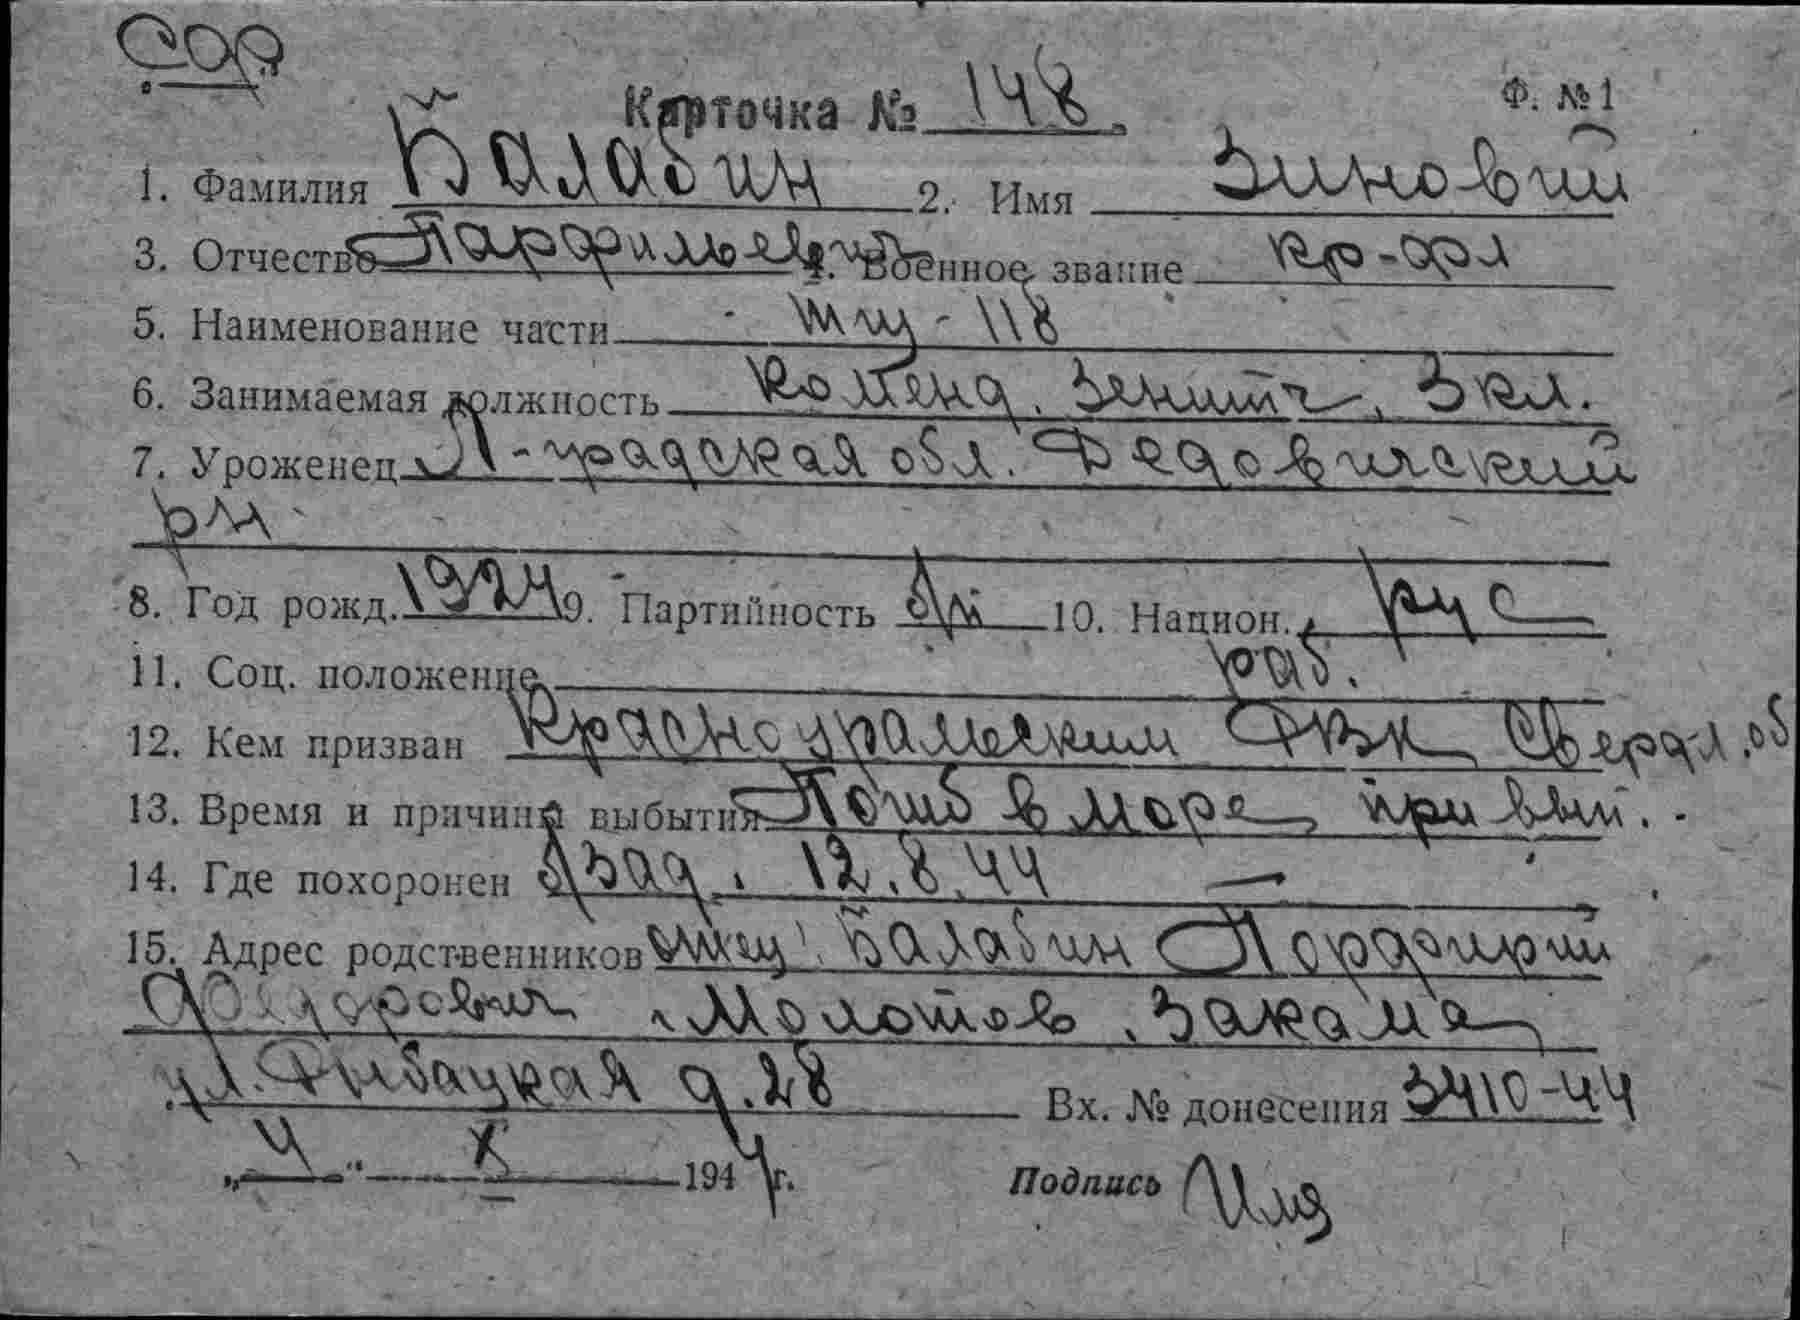 СОР
Карточка № 148 Ф. №1
1. Фамилия Балабин 2. Имя Зиновий
3. Отчество Парфильевич 4. Военное звание кр-фл
5. Наименование части тщ-118
6. Занимаемая должность Коменд. зенитч. 3 кл.
7. Уроженец Л-градская обл. Дедовичский
рн
8. Год рожд. 1924 9. Партийность б/п 10. Национ. рус
11. Соц. положение раб.
12. Кем призван Красноуральским РВК Свердл. об
13. Время и причина выбытия Погиб в море при вып.
14. Где похоронен б/зад. 12.8.44 —
15. Адрес родственников отец Балабин Порфирий
Федорович г. Молотов, Закама
ул. Рыбацкая д. 28 Вх. № донесения 3410-44
„4" X 1944г. Подпись